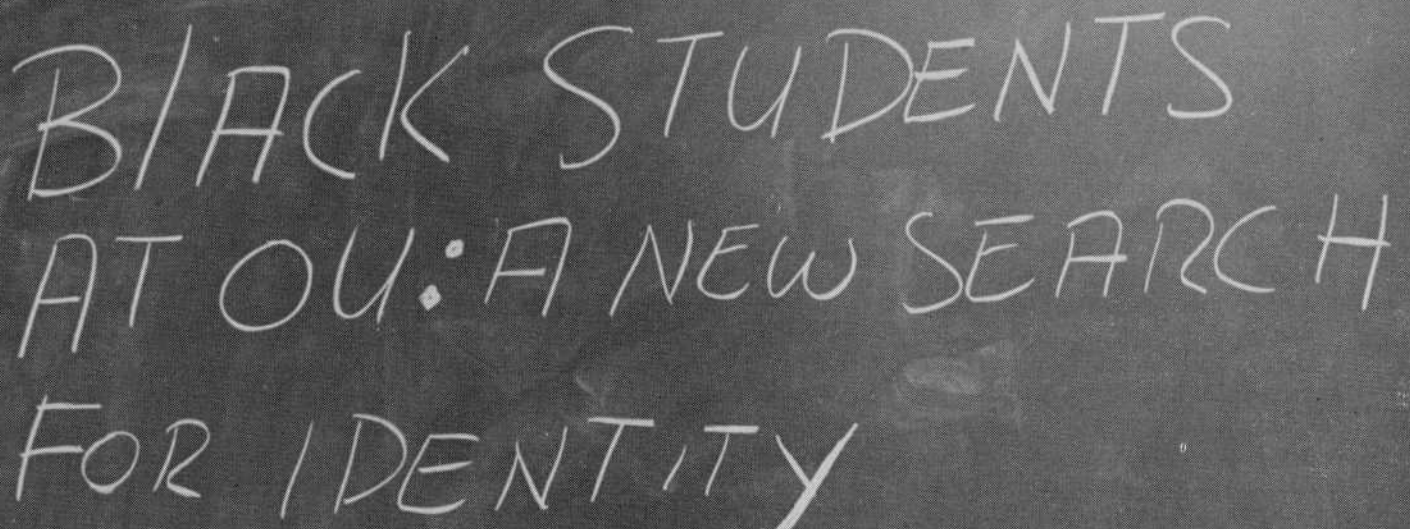 BlACK STUDENTS
AT OU: A NEW SEARCH
FOR IDENTITY